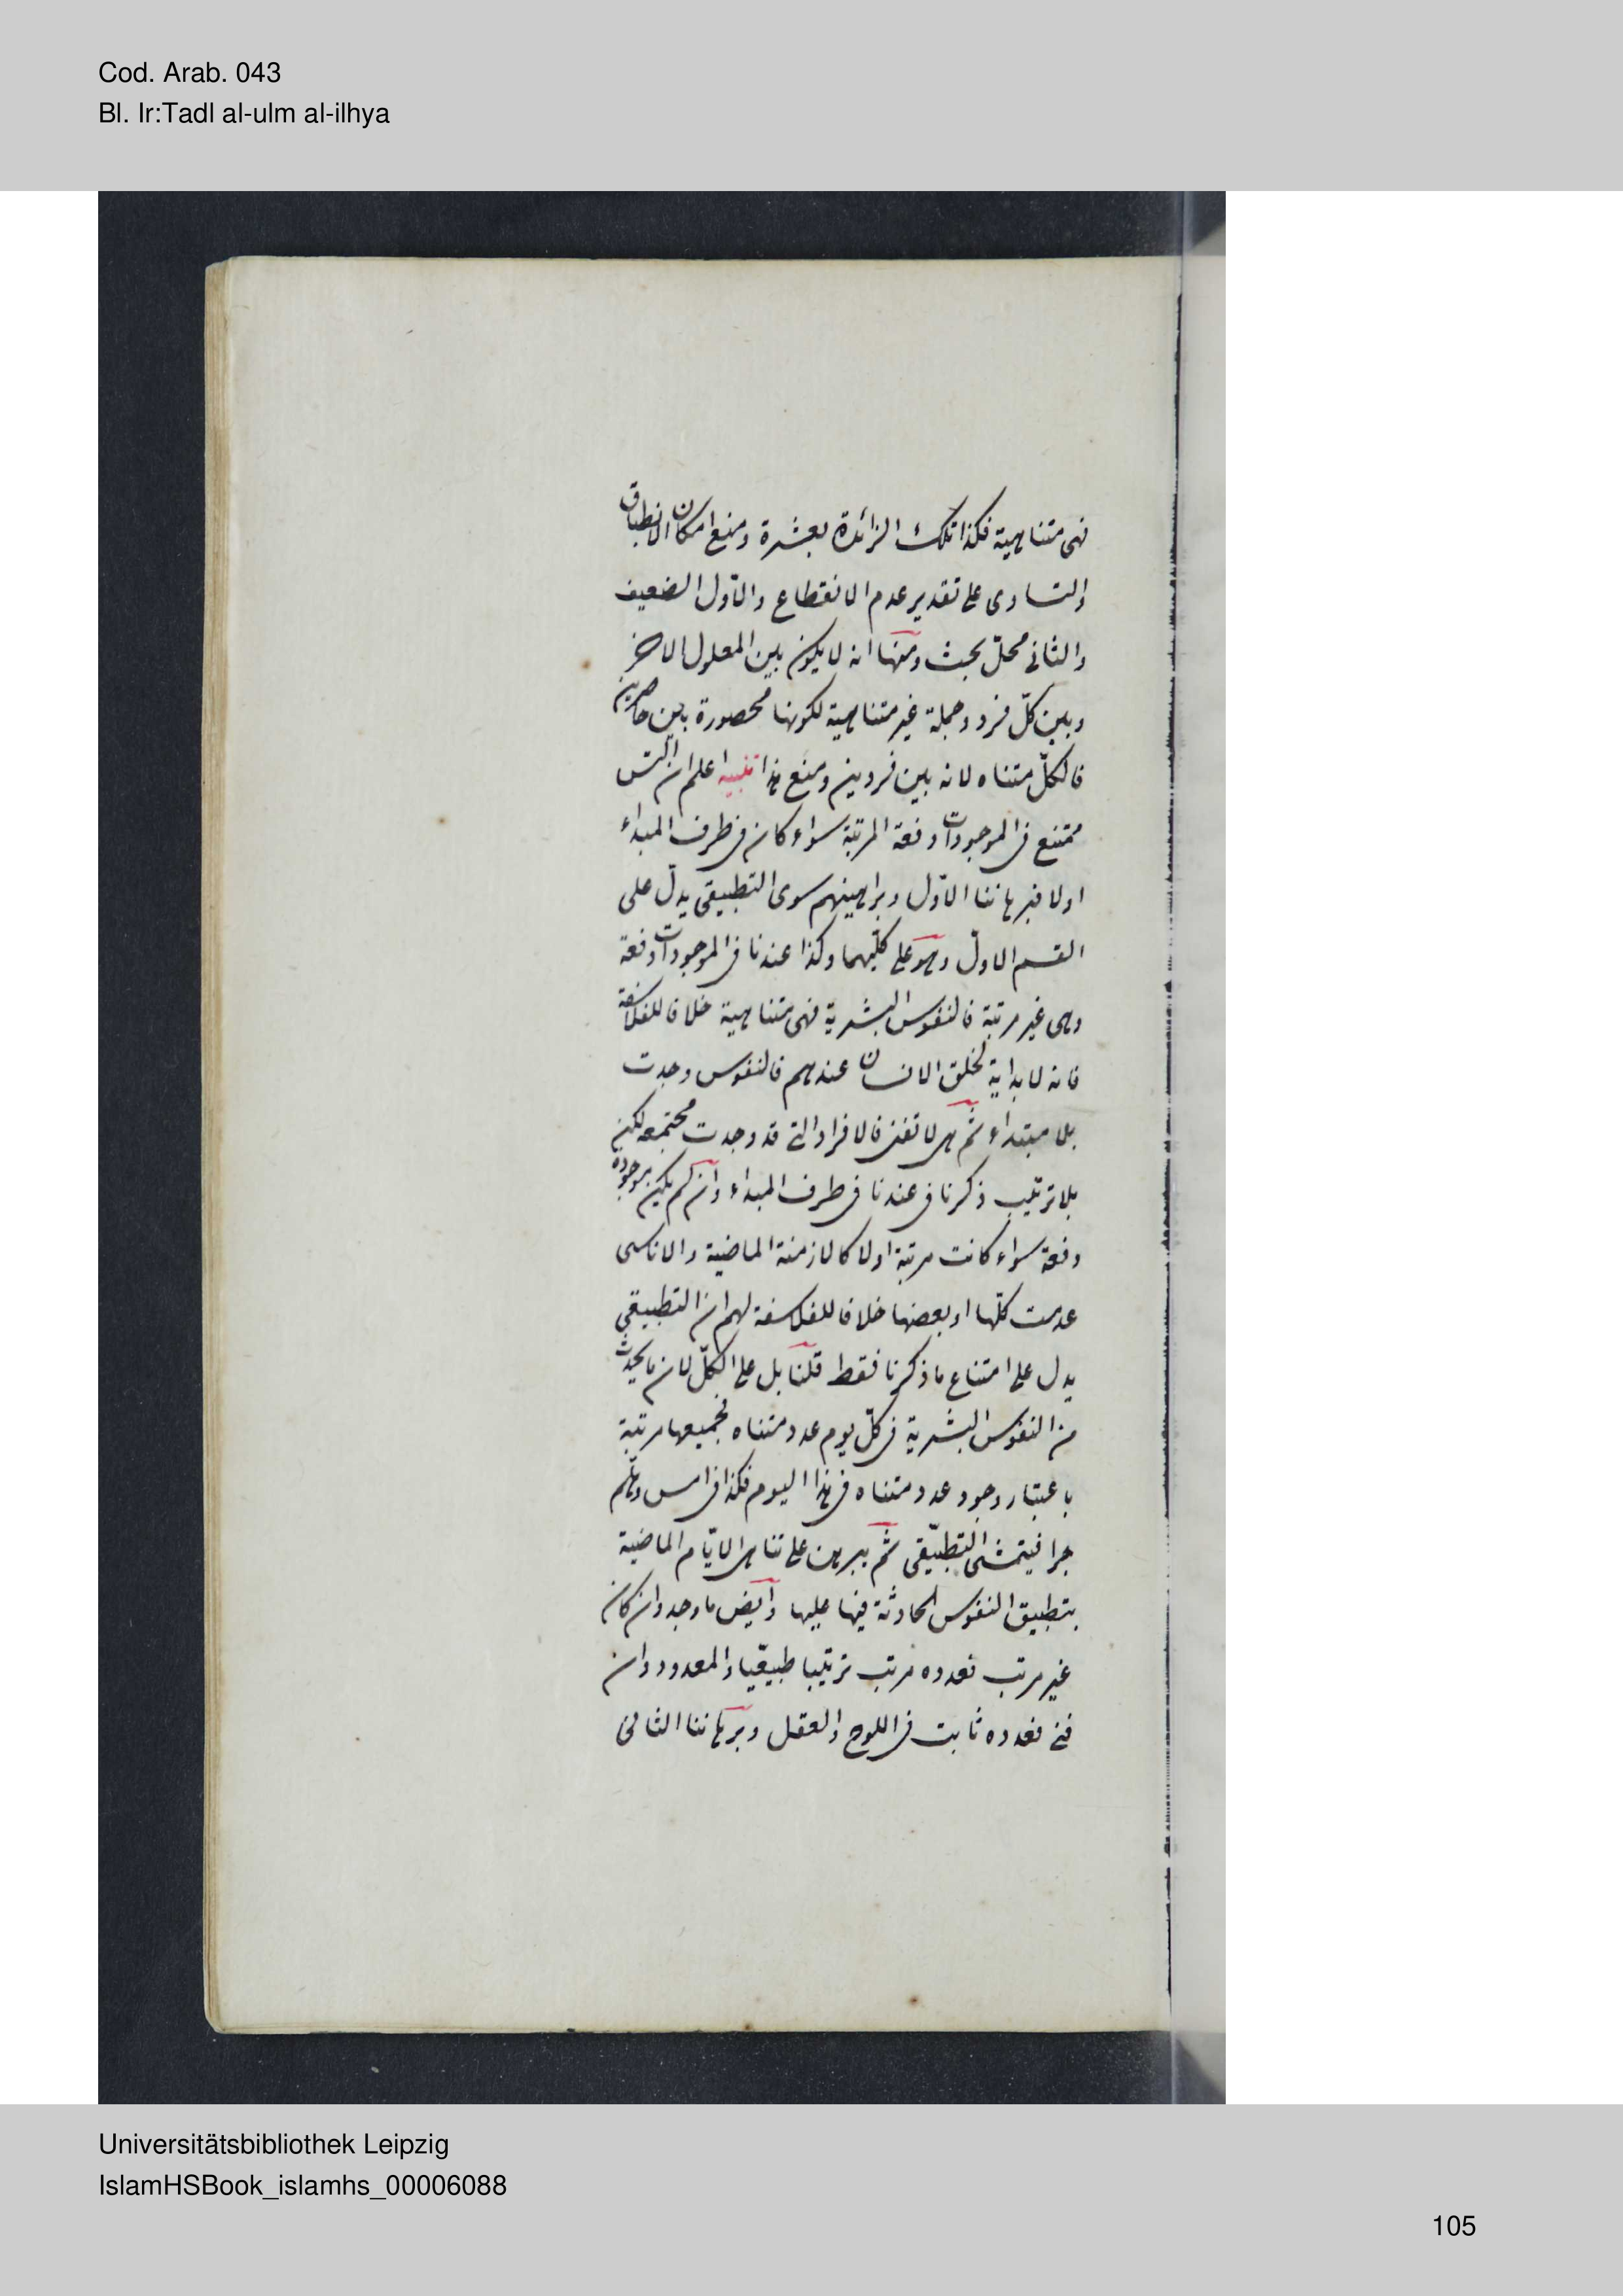 Cod. Arab. 043
Bl. Ir:Tadl al-ulm al-ilhya
فهى متناهية فكذا تلك الزائدة بعشرة ومنع امكان الانطباق
والتساوى على تقدير عدم الانقطاع والاوّل الضعيف
والثانى محلّ بحث ومنها انه لا يكون بين المعلول الاخر
وبين كلّ فرد وجملة غير متناهية لكونها محصورة بين حاصرين
فالكلّ متناه لانه بين فردين ومنع هذا تنبيه اعلم ان التس
ممتنع فى الموجودات دفعة المرتبة سواء كان فى طرف المبداء
اولا فبرهاننا الاوّل وبراهينهم سوى التطبيقى يدلّ على
القسم الاول وهو على كليهما وكذا عندنا فى الموجودات دفعة
وهى غير مرتبة فالنفوس البشرية فهى متناهية خلافا للفلاسفة
فانه لا بداية لخلق الانسان عندهم فالنفوس وجدت
بلا مبتداء ثم هى لا تفنى فالافراد التى قد وجدت مجتمعه لكن
بلا ترتيب ذكرنا فى عندنا فى طرف المبداء وان لم يكن موجودة
دفعة سواء كانت مرتبة اولا كالازمنة الماضية والاناسى
عدمت كلّها او بعضها خلافا للفلاسفة لهم ان التطبيقى
يدل على امتناع ما ذكرنا فقط قلنا بل على الكلّ لان ما يحدث
من النفوس البشرية فى كلّ يوم عدد متناه فجميعها مرتبة
باعتبار وجود عدد متناه فى هذا اليوم فكذا فى امس وهلم
جرا فيتمشى التطبيقى ثم يبرهن على تناهى الايّام الماضية
بتطبيق النفوس الحادثة فيها عليها وايض ما وجد وان كان
غير مرتب فعدده مرتب ترتيبا طبيقيا والمعدود وان
فنى فعدده ثابت فى اللوح والعقل وبرهاننا الثانى
Universitätsbibliothek Leipzig
IslamHSBook_islamhs_00006088
105